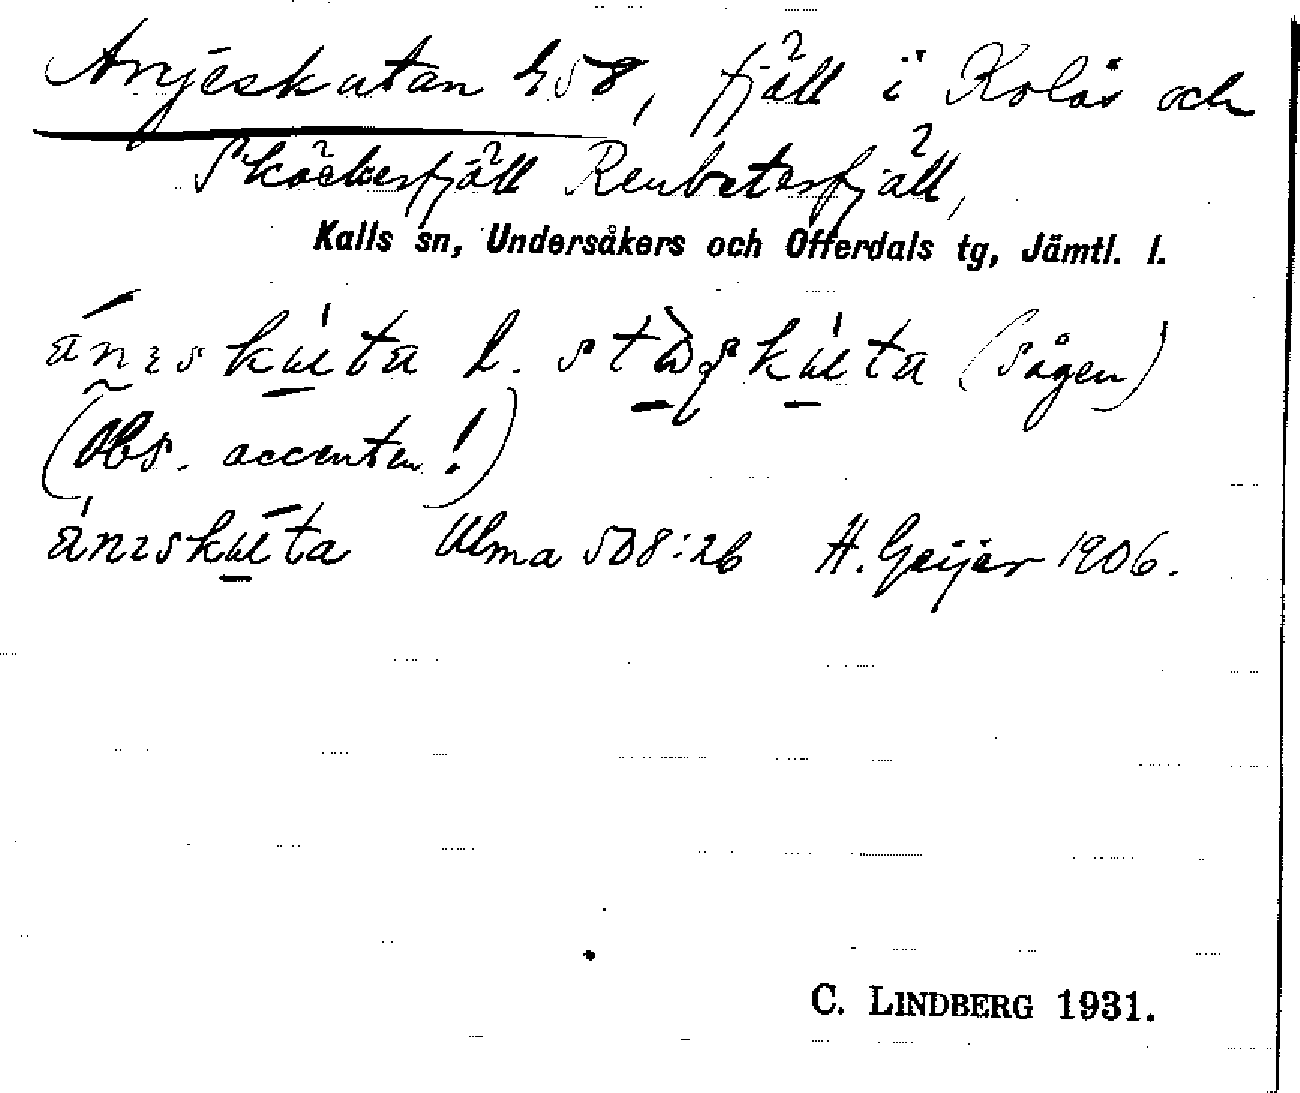 Anjeskutan 458, fjäll i Kolås och
Sköckerfjäll Renbetesfjäll,
Kalls sn, Undersåkers och Offerdals tg, Jämtl. l.
ánɪskúta l. stàɡskúta (Sågen)
(Obs. accenten!)
ánɪskúta Ulma 508:26 H. Geijer 1906.
C. LINDBERG 1931.